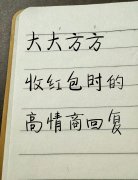 大大方方
收红包时的
高情商回复